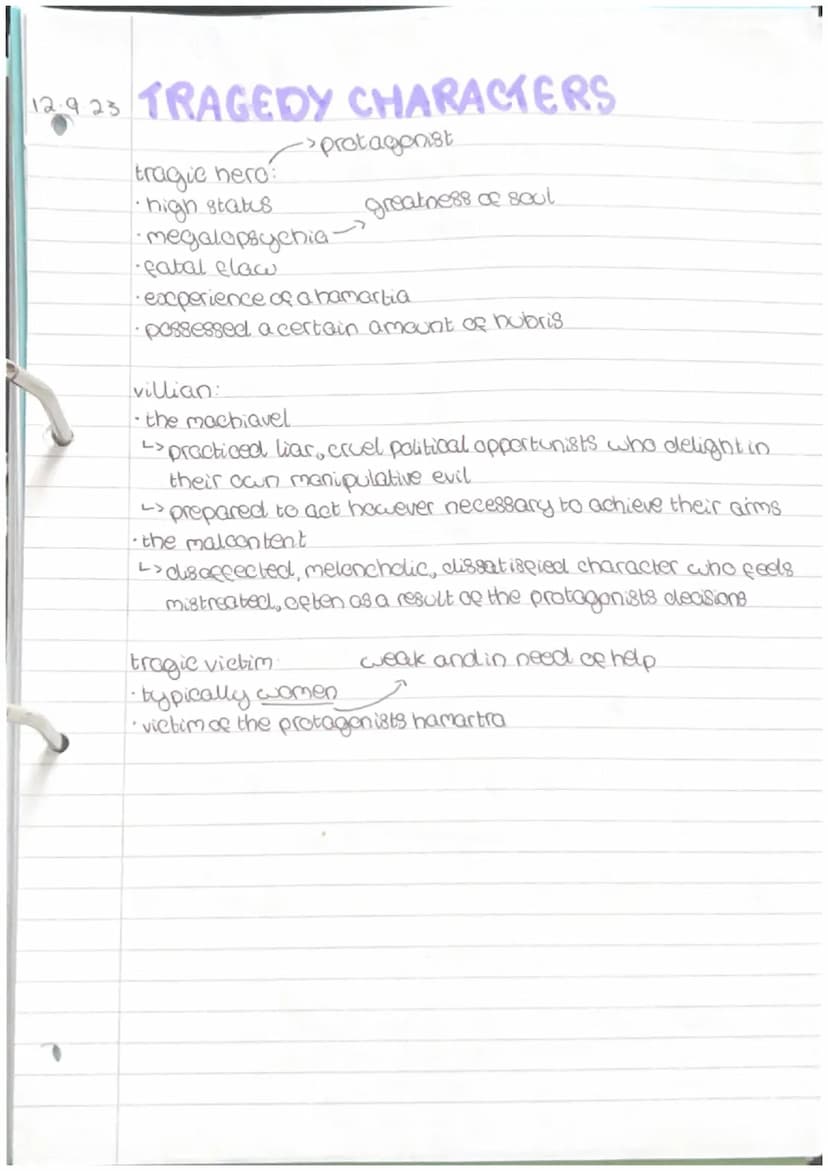 12.9.23 TRAGEDY CHARACTERS
→protagonist
tragic hero:
·high status
greatness of soul
·megalopsychia→
·fatal flaw
·experience of a hamartia
·possessed a certain amount of hubris
villian:
·the machiavel
↳practiced liar, cruel political opportunists who delight in
their own manipulative evil
↳prepared to act however necessary to achieve their aims
·the malcontent
↳disaffected, melencholic, dissatisfied character who feels
mistreated, often as a result of the protagonists decisions
tragic victim: weak and in need of help
·typically women
·victim of the protagonists hamartra